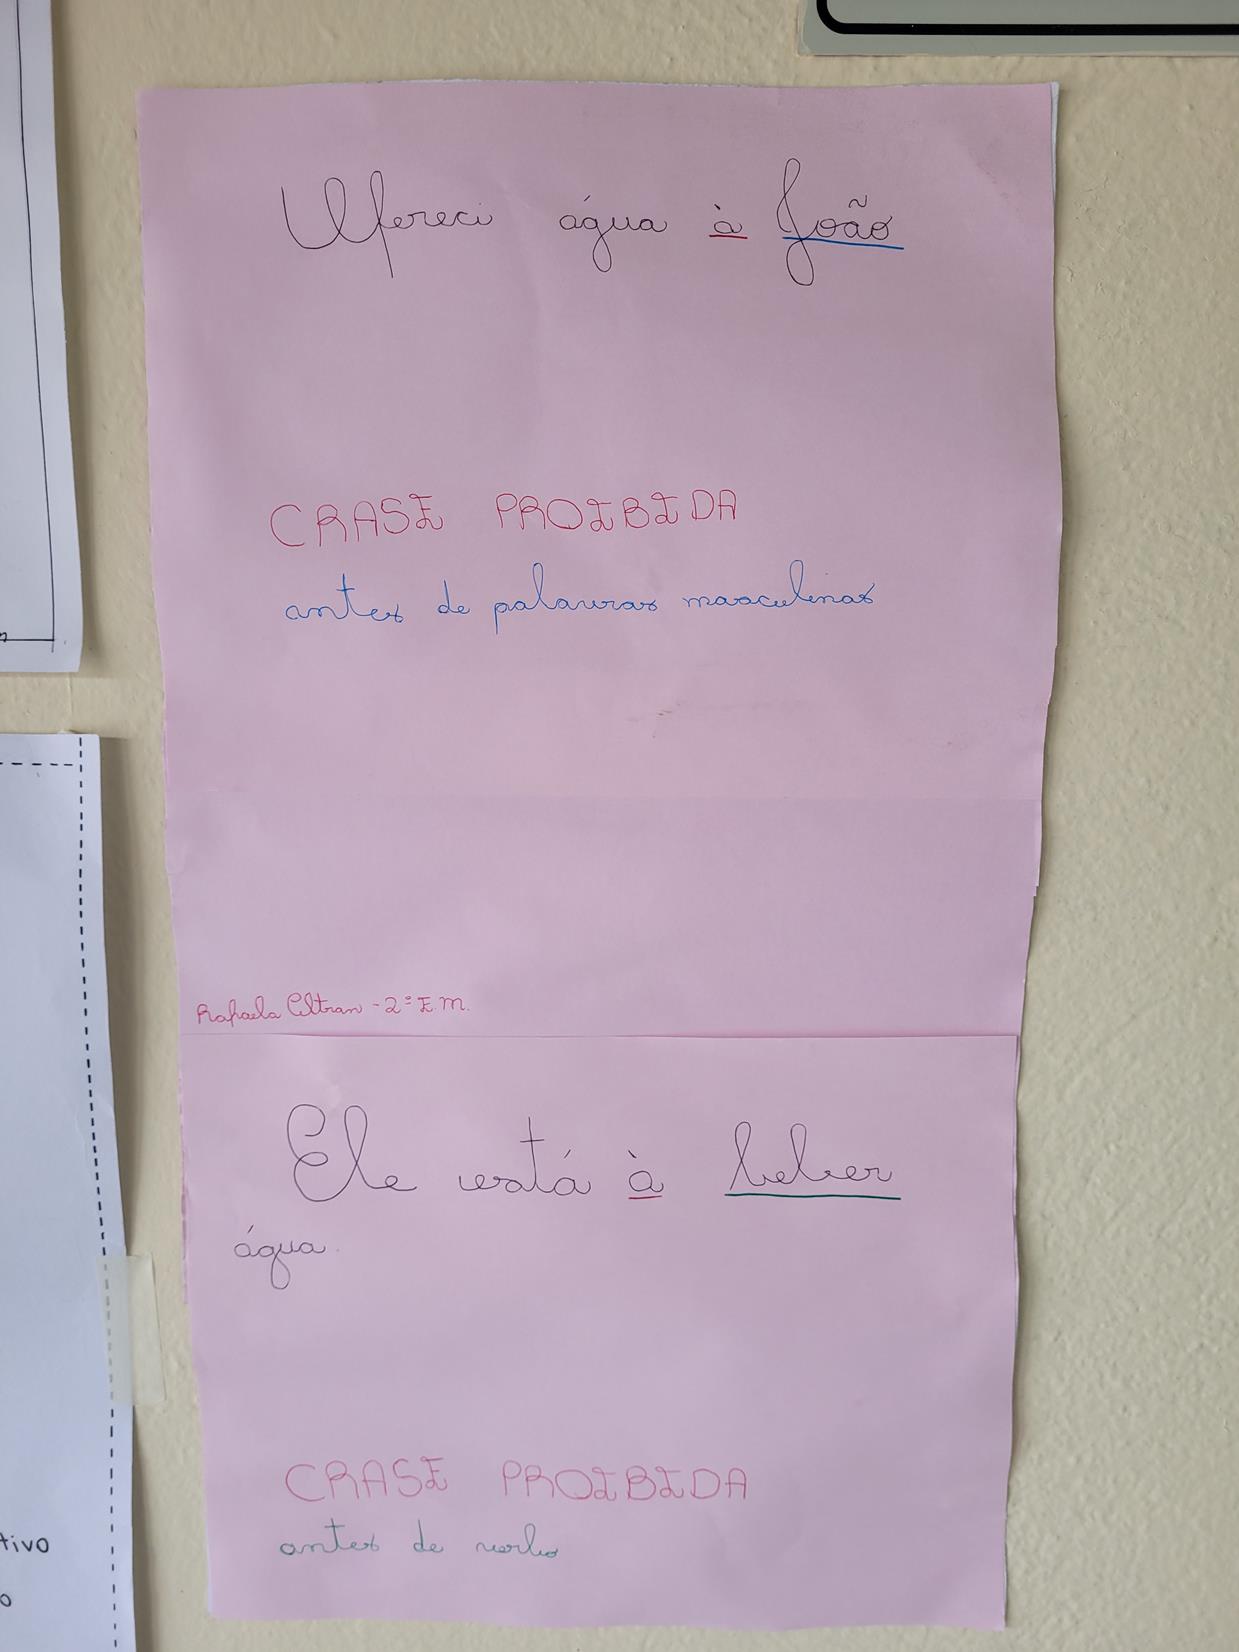 Ofereci água à João
CRASE PROIBIDA
antes de palavras masculinas
Rafaela Celtran - 2º E.M.
Ele está à beber
água.
CRASE PROIBIDA
antes de verbo
tivo
o